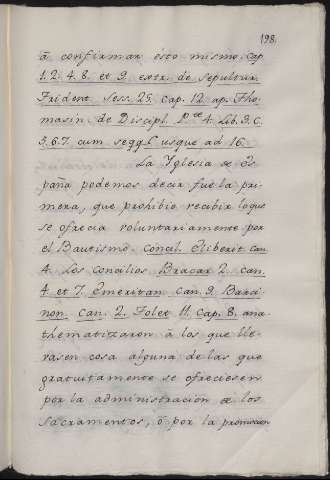 198.
â confirmar ésto mismo. Cap.
1. 2. 4. 8. et 9. extr. de sepultur.
Trident. Sess. 25. Cap. 12. ap. Tho-
masin. de Discipl. P.te 4. Lib. 3. C.
5. 6. 7. cum seqq.s usque ad 16.
La Yglesia de Es-
paña podemos decir fue la pri-
mera, que prohibió recibir loque
se ofrecia voluntariamente por
el Bautismo. Concil. Eliberit. Can.
4. Los Concilios Bracar. 2. Can.
4. et 7. Emeritan. Can. 9. Barci-
non. Can. 2. Tolet. 11. Cap. 8. ana-
thematizaron â los que lle-
vasen cosa alguna de las que
gratuitamente se ofreciesen
por la administracion de los
Sacramentos, ô por la promocion